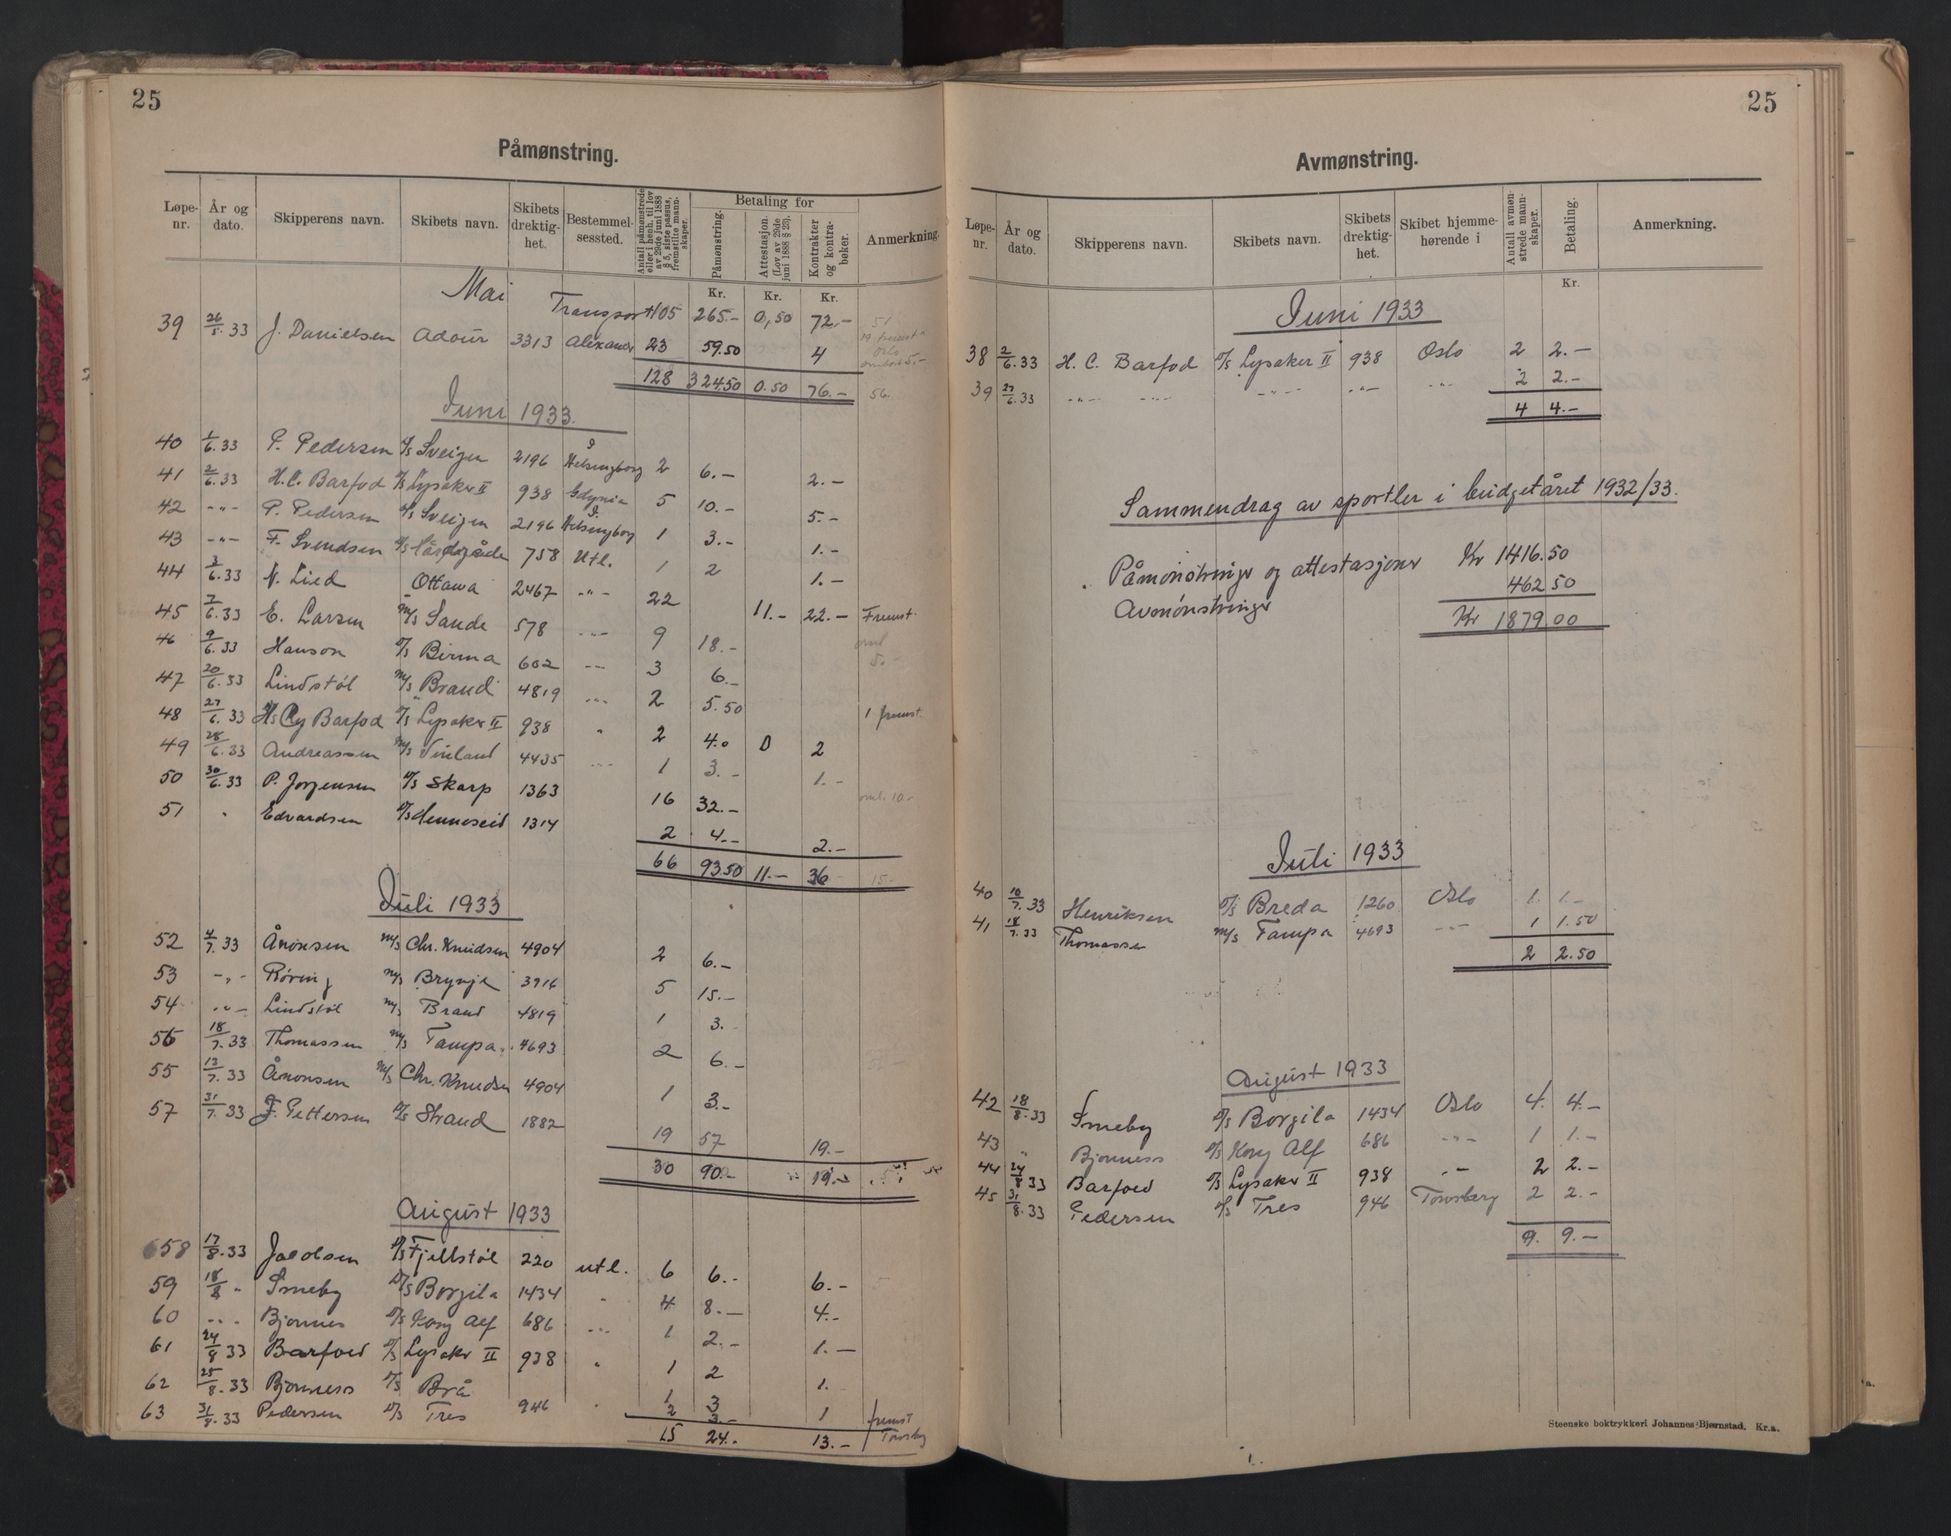 25
Påmønstring.
Løpe-nr. År og dato. Skipperens navn. Skibets navn. Skibets drektig-het. Bestemmel-sessted. Antall påmønstrede eller i henh. til lov av 29de juni 1888 § 5, siste passus, fremstilte mann-skaper. Betaling for Påmønstring. Attestasjon. (Lov av 29de juni 1888 § 23). Kontrakter og kontra-bøker. Anmerkning.
Kr. Kr. Kr.
Mai
Transport 105 265.- 0,50 72.- 51
39 26/5.33 J. Danielsen Adour 3313 Alexander 23 59.50 4 19 fremst. Oslo 5.-
128 324.50 0.50 76.- 56.
Juni 1933.
40 1/6.33 P. Pedersen D/S Sveigen 2196 Helsingborg 2 6.- 2.-
41 2/6.33 H.C. Barfod D/S Lysaker II 938 Gdynia 5 10.- 5.-
42 -"- P. Pedersen D/S Sveigen 2196 Helsingborg 1 3.- 1.-
43 -"- F. Svendsen D/S 758 Utl. 1 2 1.-
44 3/6.33 N. Lied Ottawa 2467 -"- 22 11.- 22.- Fremst.
45 7/6.33 E. Larsen M/S Sande 578 -"- 9 18.-
46 9/6.33 Hanson D/S Birma 602 -"- 3 6.-
47 20/6.33 Lindstøl M/S Brand 4819 -"- 2 5.50 1 fremst.
48 27/6.33 Barfod D/S Lysaker II 938 " 2 4.0 0 2
49 28/6.33 Andreassen M/S Vinland 4435 -"- 1 3.- 1.-
50 30/6.33 P. Jorgensen D/S Skarp 1363 16 32.- oml. 10.-
51 " Edvardsen D/S Henneseid 1314 2 4.- 2.-
66 93.50 11.- 36 15.-
Juli 1933
52 4/7.33 Ånonsen M/S Chr. Knudsen 4904 2 6.-
53 -"- Røring M/S Brynje 3916 5 15.-
54 -"- Lindstøl M/S Brand 4819 1 3.-
56 18/7.33 Thomassen M/S Tampa 4693 2 6.-
55 12/7.33 Ånonsen M/S Chr. Knudsen 4904 1 3.-
57 31/7.33 J. Pettersen D/S Strand 1882 19 57 19.-
30 90.- 19.-
August 1933
58 17/8.33 Jacobsen D/S Fjellstøl 220 utl. 6 6.- 6.-
59 18/8 " Smeby D/S Borgila 1434 " 4 8.- 4.-
60 -"- Bjonnes D/S Kong Alf 686 -"- 1 2.- 1.-
61 24/8 33 Barfoed D/S Lysaker II 938 " 1 2 1.
62 25/8.33 Bjonness D/S Brå 1 3 1
63 31/8.33 Pedersen D/S Tres 946 " 2 3.- fremst Tønsberg
15 24.- 13.-
25
Avmønstring.
Løpe-nr. År og dato. Skipperens navn. Skibets navn. Skibets drektig-het. Skibet hjemme-hørende i Antall avmøn-strede mann-skaper. Betaling. Anmerkning.
Kr.
Juni 1933
38 2/6.33 H. C. Barfod D/S Lysaker II 938 Oslo 2 2.-
39 27/6.33 -"- -"- -"- -"- -"- 2 2.-
4 4.-
Sammendrag av sportler i budgetåret 1932/33.
Påmønstringer og attestasjoner Kr 1416.50
Avmønstringer 462 50
Kr 1879.00
Juli 1933
40 10/7.33 Henriksen D/S Breda 1260 Oslo 1. 1.-
41 18/7.33 Thomassen M/S Tampa 4693 -"- 1 1.50
2 2.50
August 1933
42 18/8.33 Smeby D/S Borgila 1434 Oslo 4. 4.-
43 " Bjonness D/S Kong Alf 686 -"- 1 1.-
44 24/8 33 Barfoed D/S Lysaker II 938 -"- 2 2.-
45 31/8.33 Pedersen D/S Tres 946 Tønsberg 2 2.-
9. 9.-
Steenske boktrykkeri Johannes Bjørnstad. Kr.a.